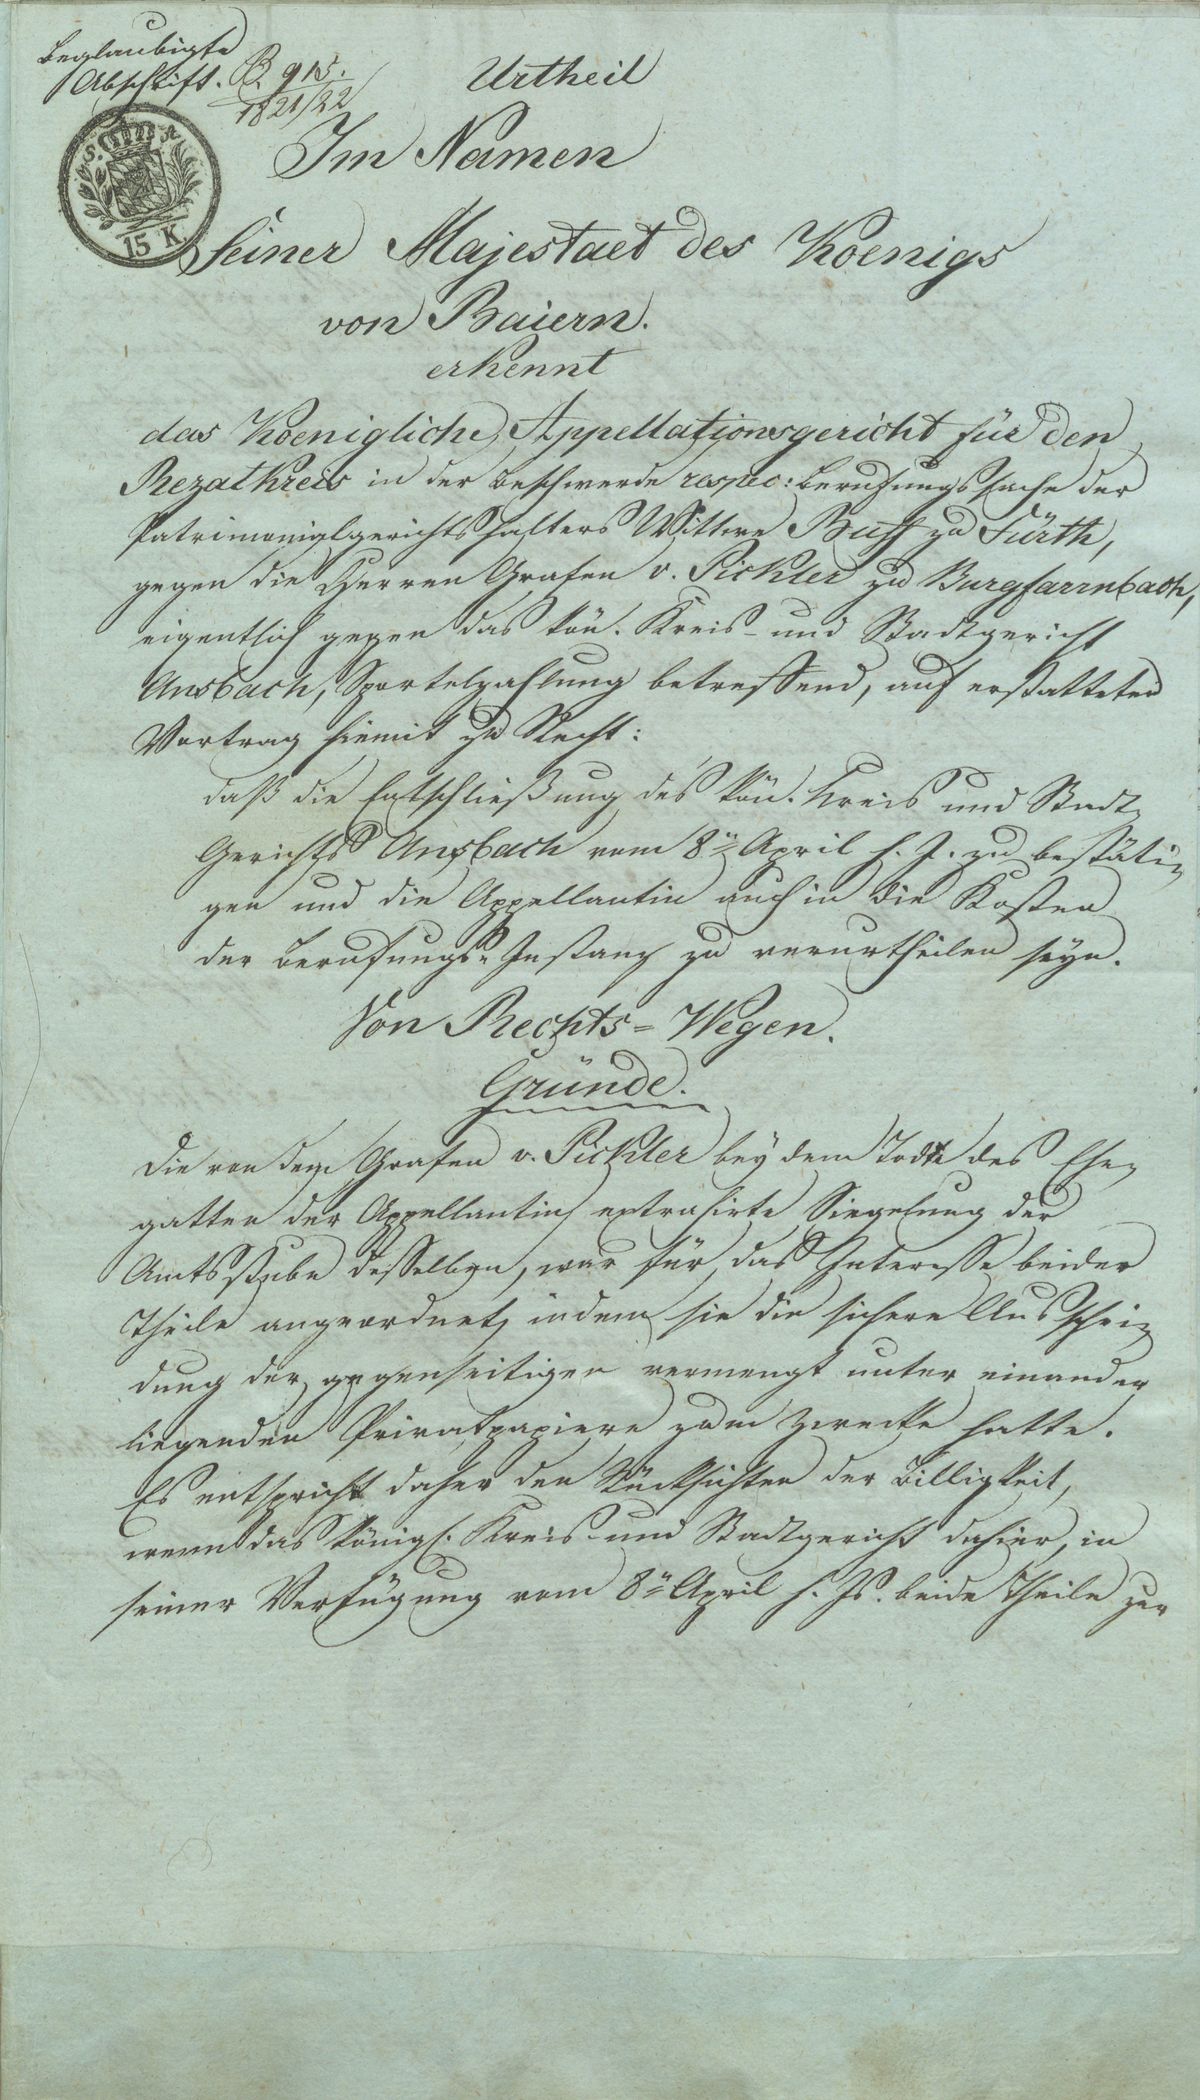 Beglaubigte
Abschrift. B. 915.
1821/22
Urtheil
Im Namen
S. R.
15 K
Seiner Majestaet des Koenigs
von Baiern.
erkennt
das Koenigliche Appellationsgericht für den
Rezatkreis in der Beschwerde respec: Berufungssache der
Patrimonialgerichtshalters Wittwe Buff zu Fürth,
gegen die Herren Grafen v. Pickler zu Burgfarrnbach,
eigentlich gegen das kön. Kreis- und Stadtgericht
Ansbach, Sportelzahlung betreffend, auf erstatteten
Vortrag hiemit zu Recht:
daß die Entschließung des kön. Kreis und Stadt
Gerichts Ansbach vom 8n April h. J. zu bestäti-
gen und die Appellantin auch in die Kosten
der Berufungs-Instanz zu verurtheilen seyn.
Von Rechts-Wegen.
Gründe.
Die von dem Grafen v. Pickler bey dem Tode des Ehe-
gatten der Appellantin extrahirte Siegelung der
Amtsstube desselben, war für das Interesse beider
Theile angeordnet, indem sie die sichere Ausschei-
dung der gegenseitigen vermengt unter einander
liegenden Privatpapiere zum Zwecke hatte.
Es entspricht daher den Rücksichten der Billigkeit,
wenn das königl. Kreis- und Stadtgericht dahier, in
seiner Verfügung vom 8n April h. Js. beide Theile zur